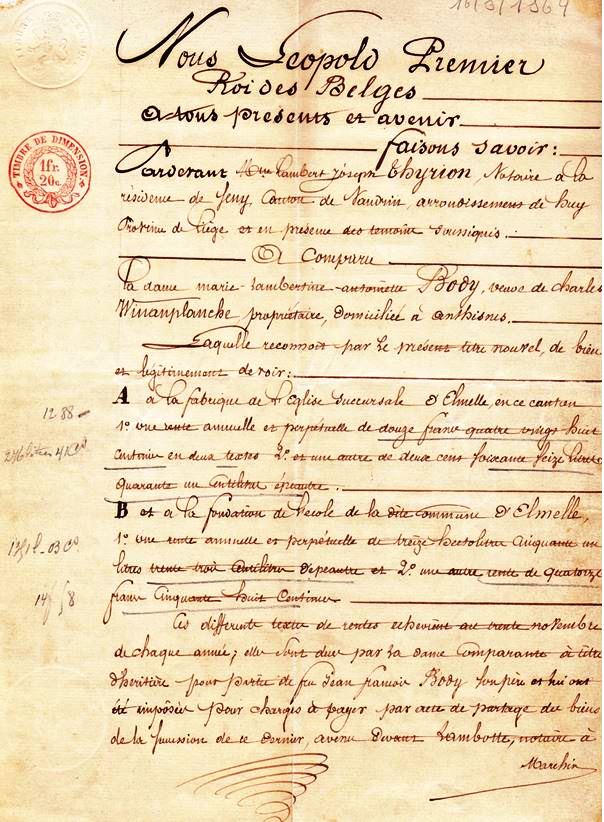 16/3/1864
Nous Leopold Premier
Roi des Belges
A tous presents et avenir
faisons savoir:
TIMBRE DE DIMENSION
1fr.
20c.
Pardevant Mtre Lambert Joseph Thyrion, Notaire à la
résidence de Seny Canton de Nandrin, arrondissement de huy
Province de Liège et en présence des temoins soussignés.
A Comparu
la dame marie-Lambertine-antoinette Body, veuve de charles
Winanplanche propriétaire, domiciliée à anthisnes.
Laquelle reconnoit par le présent titre nouvel, de bien
et legitimement devoir:
A à la fabrique de l'Eglise succursale d'Elmelle, en ce canton
1288
1° une rente annuelle et perpétuelle de douze francs quatre vingt huit
centimes en deux textes 2° et une autre de deux cens soixante seize litres
quarante un centilitres épeautre.
B et à la fondation de l'ecole de la dite commune d'Elmelle,
1° une rente annuelle et perpétuelle de treize hectolitres cinquante un
litres trente trois centilitres d'epeautre et 2° une autre rente de quatorze
francs cinquante huit centimes
Ces differents textes de rentes echevient au trente novembre
de chaque année; elles sont dues par la dame comparante à titre
d'heritière pour partie de feu Jean francois Body son père et lui ont
été imposées pour charges à payer par acte de partage des biens
de la succession de ce dernier, avenu devant Lambotte, notaire à
Marchin